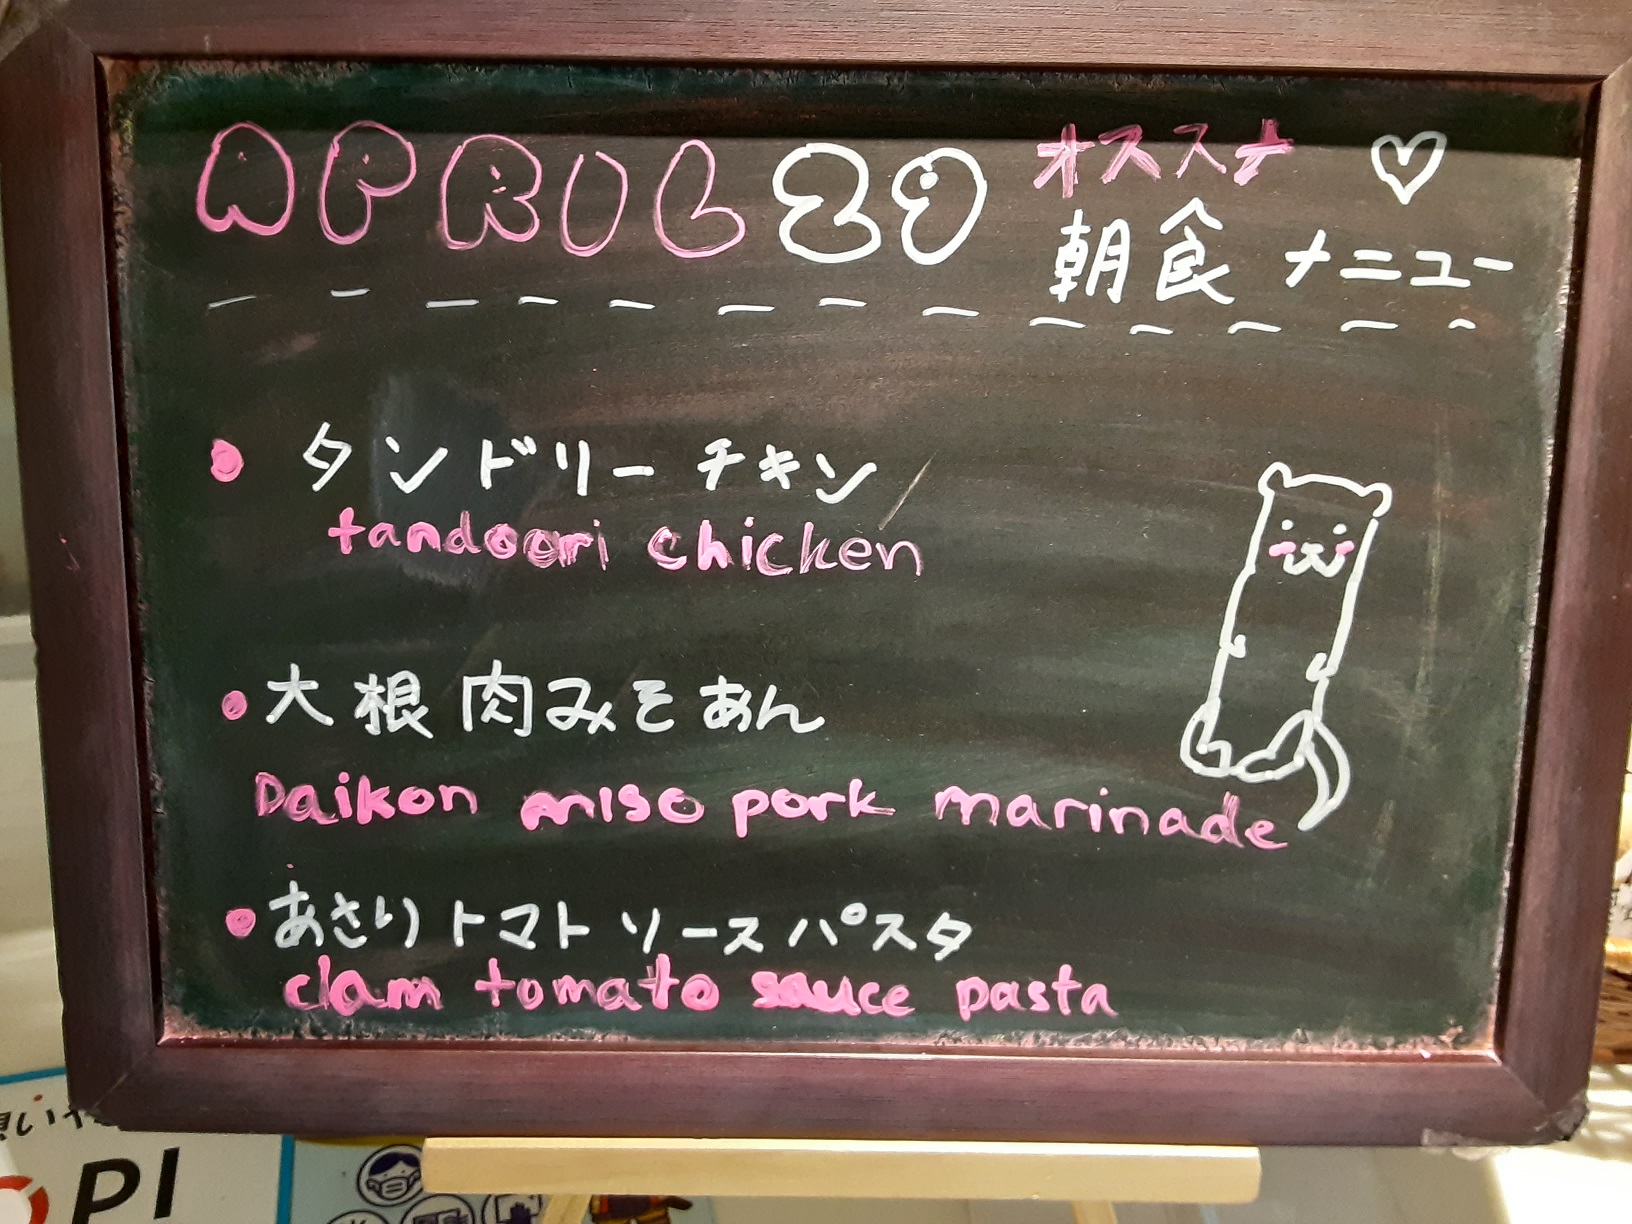 APRIL 29 オススメ
朝食メニュー
タンドリーチキン
tandoori chicken
大根肉みそあん
Daikon miso pork marinade
あさりトマトソースパスタ
clam tomato sauce pasta
PI